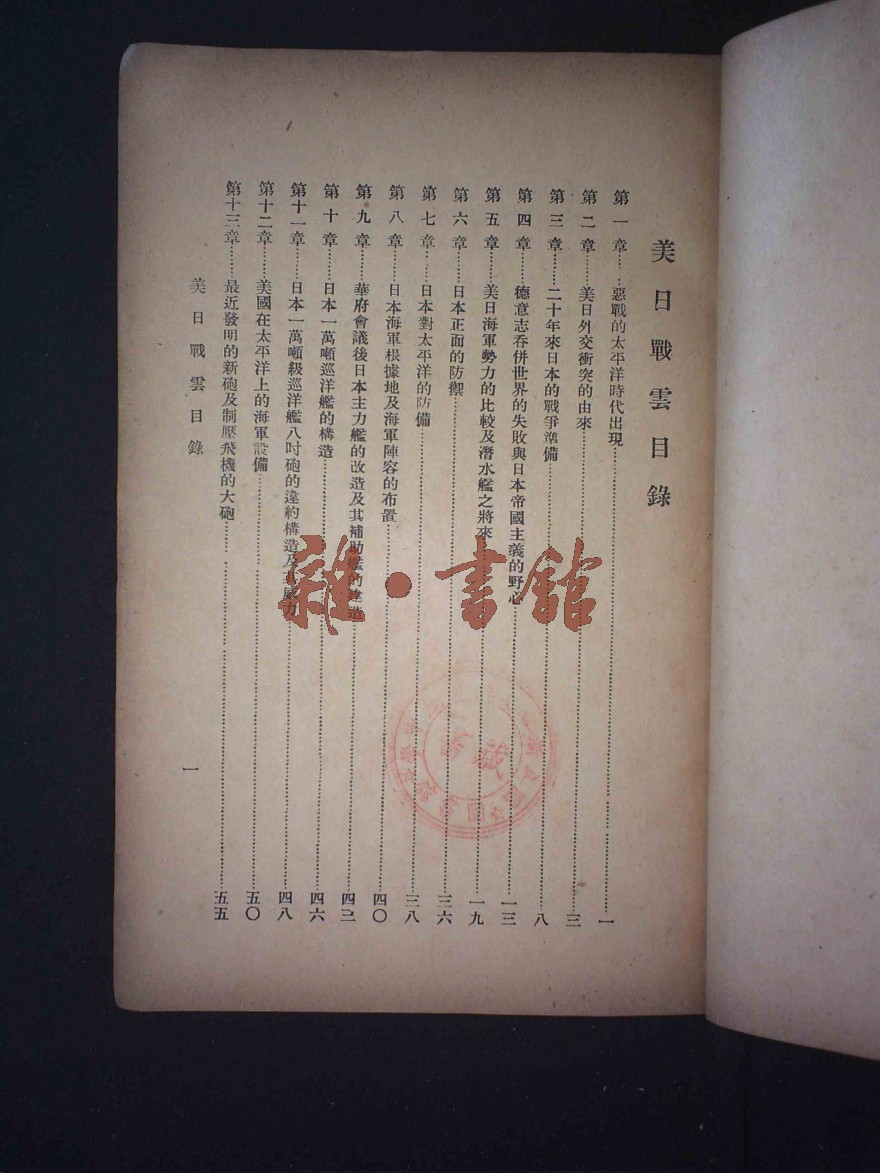 美日戰雲目錄
第一章……惡戰的太平洋時代出現……一
第二章……美日外交衝突的由來……三
第三章……二十年來日本的戰爭準備……八
第四章……德意志吞併世界的失敗與日本帝國主義的野心……一三
第五章……美日海軍勢力的比較及潛水艦之將來……一九
第六章……日本正面的防禦……三六
第七章……日本對太平洋的防備……三八
第八章……日本海軍根據地及海軍陣容的布置……四〇
第九章……華府會議後日本主力艦的改造及其補助艦的建造……四二
第十章……日本一萬噸巡洋艦的構造……四六
第十一章……日本一萬噸級巡洋艦八吋砲的違約構造及其威力……四八
第十二章……美國在太平洋上的海軍設備……五〇
第十三章……最近發明的新砲及制壓飛機的大砲……五五
美日戰雲目錄
一
雜·書館